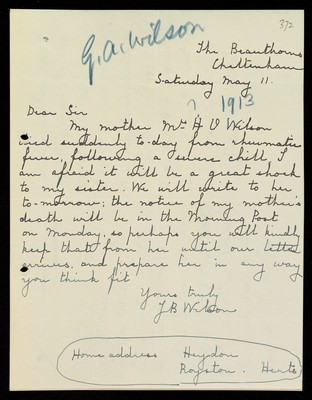 372
G.A. Wilson
The Beauthorns
Cheltenham
Saturday May 11.
? 1913
Dear Sir
My mother Mrs H V Wilson
died suddenly to-day from rheumatic
fever, following a severe chill. I
am afraid it will be a great shock
to my sister. We will write to her
to-morrow; the notice of my mother's
death will be in the Morning Post
on Monday, so perhaps you will kindly
keep that from her until our letter
arrives, and prepare her in any way
you think fit
Yours truly
J B Wilson
Home address Heydon
Royston. Herts